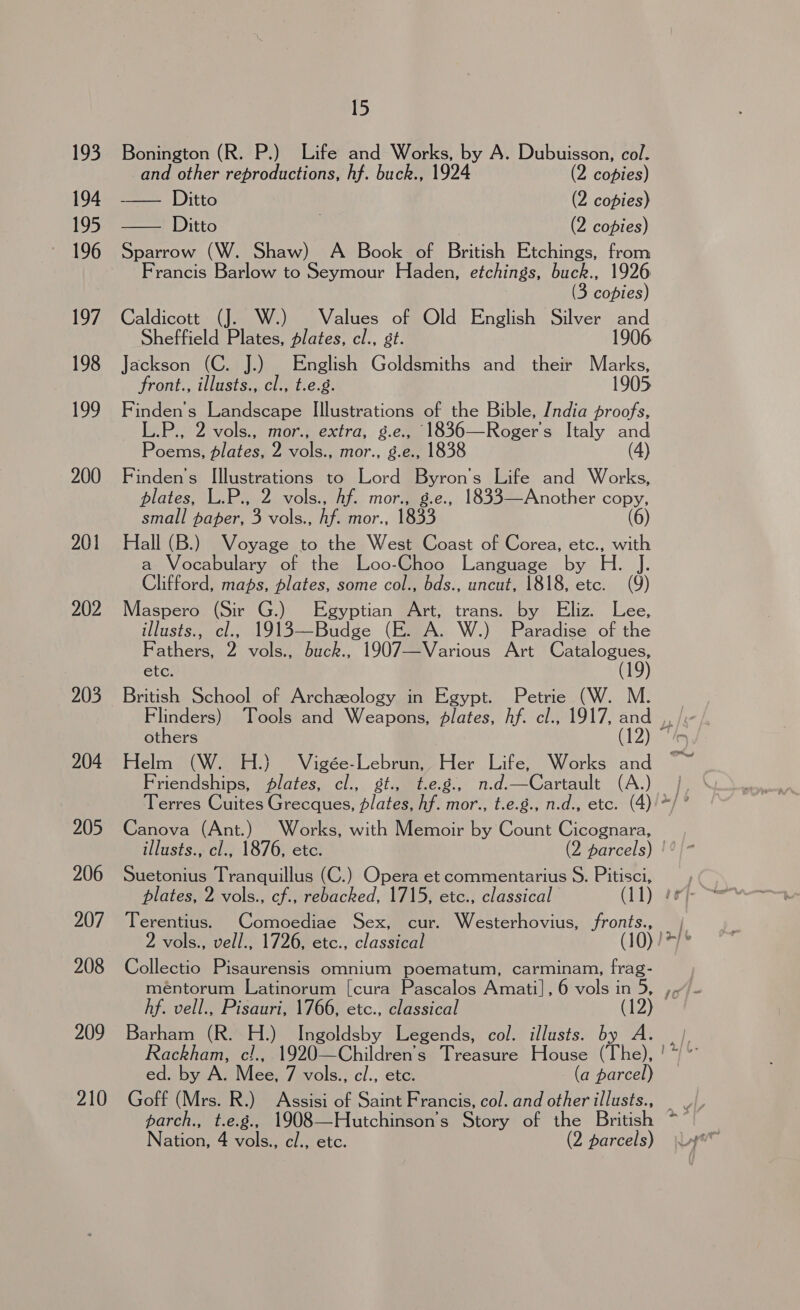 15
193 Bonington (R. P.) Life and Works, by A. Dubuisson, col.
and other reproductions, hf. buck., 1924 (2 copies)
194 —— Ditto (2 copies)
195 —— Ditto (2 copies)
196 Sparrow (W. Shaw) A Book of British Etchings, from
Francis Barlow to Seymour Haden, etchings, buck., 1926
(3 copies)
197 Caldicott (J. W.) Values of Old English Silver and
Sheffield Plates, plates, cl., gt. 1906
198 Jackson (C. J.) English Goldsmiths and their Marks,
front., illusts., cl., t.e.g. 1905
199 Finden's Landscape Illustrations of the Bible, India proofs,
L.P., 2 vols., mor., extra, g.e., 1836—Roger's Italy and
Poems, plates, 2 vols., mor., g.e., 1838 (4)
200 Finden's Illustrations to Lord Byron's Life and Works,
plates, L.P., 2 vols., hf. mor., g.e., 1833—Another copy,
small paper, 3 vols., hf. mor., 1833 (6)
201 Hall (B.) Voyage to the West Coast of Corea, etc., with
a Vocabulary of the Loo-Choo Language by H. J.
Clifford, maps, plates, some col., bds., uncut, 1818, etc. (9)
202 Maspero (Sir G.) Egyptian Art, trans. by Eliz. Lee,
illusts., cl., 1913—Budge (E. A. W.) Paradise of the
Fathers, 2 vols., buck., 1907—Various Art Catalogues,
etc. (19)
203 British School of Archæology in Egypt. Petrie (W. M.
Flinders) Tools and Weapons, plates, hf. cl., 1917, and
others (12)
204 Helm (W. H.) Vigée-Lebrun, Her Life, Works and
Friendships, plates, cl., gt., t.e.g., n.d.—Cartault (A.)
Terres Cuites Grecques, plates, hf. mor., t.e.g., n.d., etc. (4)
205 Canova (Ant.) Works, with Memoir by Count Cicognara,
illusts., cl., 1876, etc. (2 parcels)
206 Suetonius Tranquillus (C.) Opera et commentarius S. Pitisci,
plates, 2 vols., cf., rebacked, 1715, etc., classical (11)
207 Terentius. Comoediae Sex, cur. Westerhovius, fronts.,
2 vols., vell., 1726, etc., classical (10)
208 Collectio Pisaurensis omnium poematum, carminam, frag-
mentorum Latinorum [cura Pascalos Amati], 6 vols in 5,
hf. vell., Pisauri, 1766, etc., classical (12)
209 Barham (R. H.) Ingoldsby Legends, col. illusts. by A.
Rackham, cl., 1920—Children's Treasure House (The),
ed. by A. Mee, 7 vols., cl., etc. (a parcel)
210 Goff (Mrs. R.) Assisi of Saint Francis, col. and other illusts.,
parch., t.e.g., 1908—Hutchinson's Story of the British
Nation, 4 vols., cl., etc. (2 parcels)